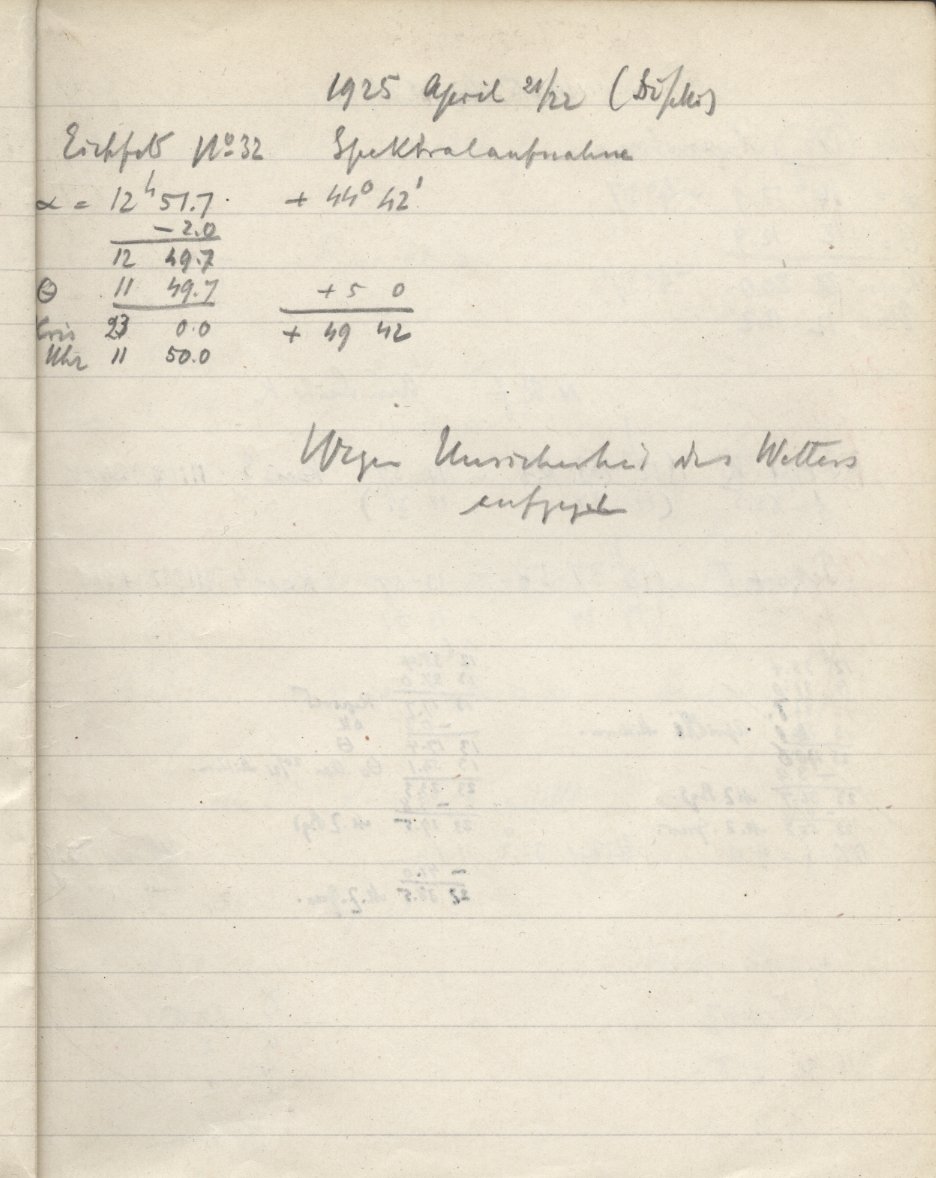 1925 April 21/22 (
Eichfeld No 32 Spektralaufnahme
α = 12h 51.7 + 44° 42'
- 2.0
12 49.7
Θ 11 49.7 + 5 0
23 0.0 + 49 42
Uhr 11 50.0
Wegen Unsicherheit des Wetters
aufgegeben